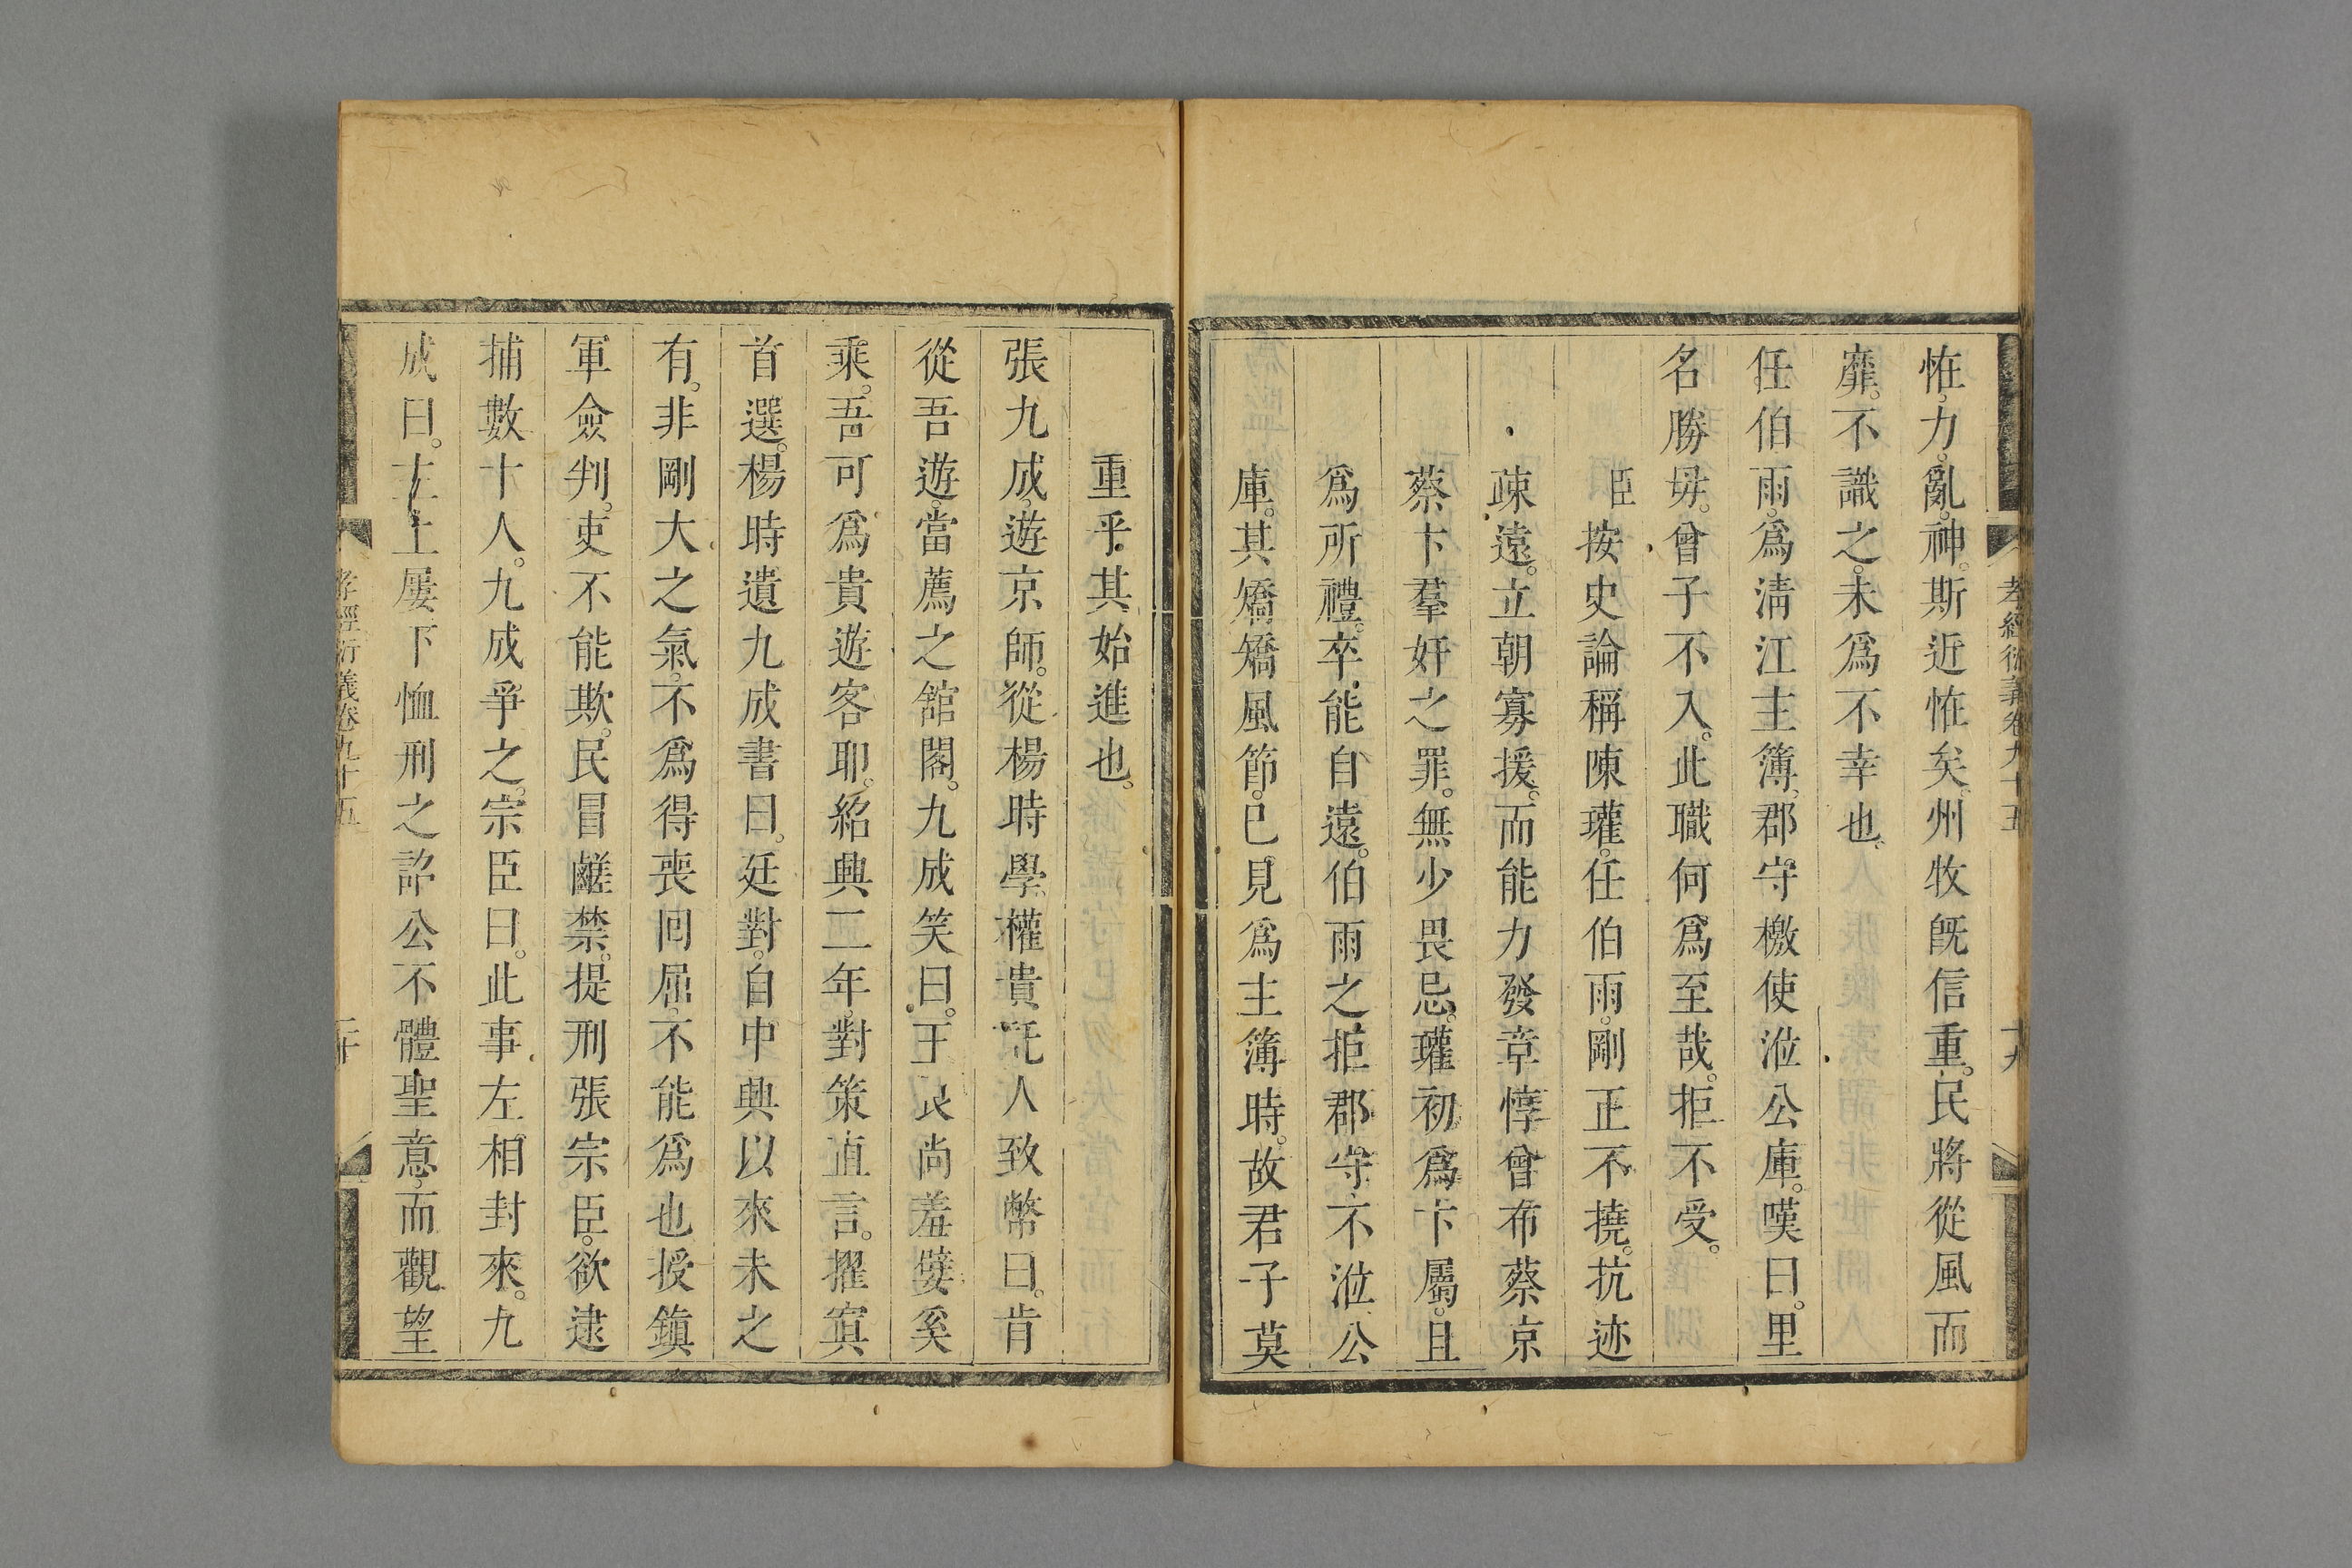 孝經衍義卷九十五
十九
恠力亂神。斯近恠矣。州牧旣信重。民將從風而
靡。不識之。未爲不幸也。
任伯雨。爲淸江主簿。郡守檄使涖公庫。嘆曰。里
名勝毋。曾子不入。此職何爲至哉。拒不受。
臣按史論稱陳瓘。任伯雨。剛正不撓。抗迹
疎遠。立朝寡援。而能力發章惇曾布蔡京
蔡卞羣奸之罪。無少畏忌。瓘初爲卞屬。且
爲所禮。卒能自遠。伯雨之拒郡守。不涖公
庫。其矯矯風節。已見爲主簿時。故君子莫
重乎其始進也。
張九成。遊京師。從楊時學。權貴託人致幣曰。肯
從吾遊。當薦之舘閣。九成笑曰。王良尚羞嬖奚
乘。吾可爲貴遊客耶。紹興二年。對策直言。擢寘
首選。楊時遺九成書曰。廷對。自中興以來未之
有。非剛大之氣。不爲得喪囘屈。不能爲也授鎭
軍僉判。吏不能欺。民冒鹺禁。提刑張宗臣。欲逮
捕數十人。九成爭之。宗臣曰。此事左相封來。九
成曰。主上屢下恤刑之詔公不體聖意。而觀望
孝經衍義卷九十五
二十